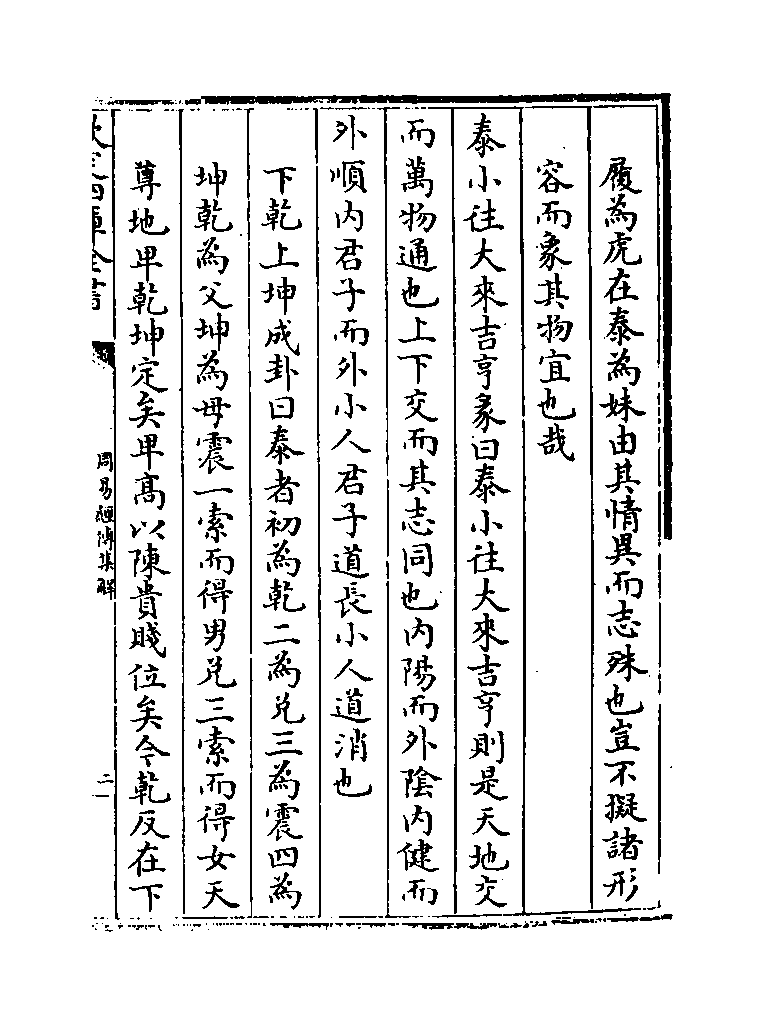 履為虎在泰為妹由其情異而志殊也豈不擬諸形
容而象其物宜也哉
泰小往大來吉亨彖曰泰小往大來吉亨則是天地交
而萬物通也上下交而其志同也内陽而外陰内健而
外順内君子而外小人君子道長小人道消也
下乾上坤成卦曰泰者初為乾二為兑三為震四為
坤乾為父坤為母震一索而得男兑三索而得女天
尊地卑乾坤定矣卑髙以陳貴賤位矣今乾反在下
欽定四庫全書
周易經傳集解
二